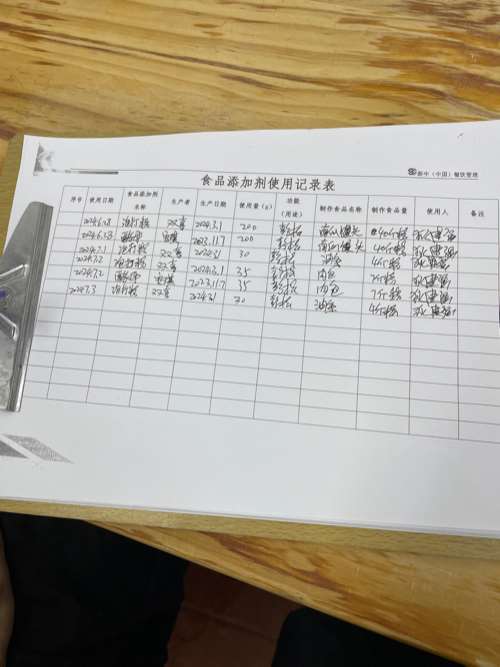 新中（中国）餐饮管理
食品添加剂使用记录表
序号 使用日期 食品添加剂名称 生产者 生产日期 使用量（g） 功能（用途） 制作食品名称 制作食品量 使用人 备注
2024.6.28 泡打粉 双喜 2024.3.1 200 蓬松 南瓜馒头 40斤粉
2024.6.28 酵母 2023.11.7 200 蓬松 南瓜馒头 40斤粉
2024.7.1 泡打粉 双喜 2024.3.1 30 蓬松 油条 4斤粉
2024.7.2 泡打粉 双喜 2024.3.1 35 蓬松 肉包 7斤粉
2024.7.2 酵母 2023.11.7 35 蓬松 肉包 7斤粉
2024.7.3 泡打粉 双喜 2024.3.1 30 蓬松 油条 4斤粉